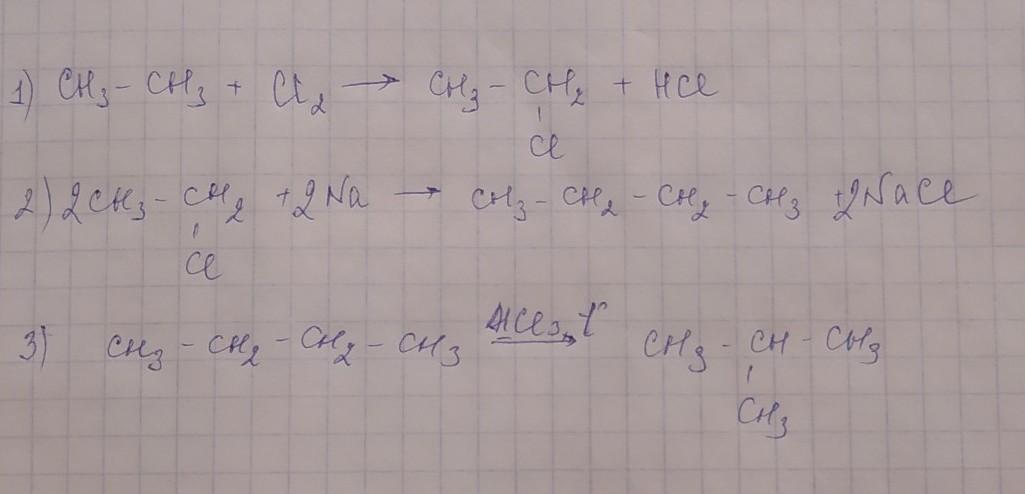 1) CH₃ - CH₃ + Cl₂ → CH₃ - CH₂ + HCl
Cl
2) 2CH₃ - CH₂ + 2Na → CH₃ - CH₂ - CH₂ - CH₃ + 2NaCl
Cl
3) CH₃ - CH₂ - CH₂ - CH₃ AlCl₃, t° → CH₃ - CH - CH₃
CH₃